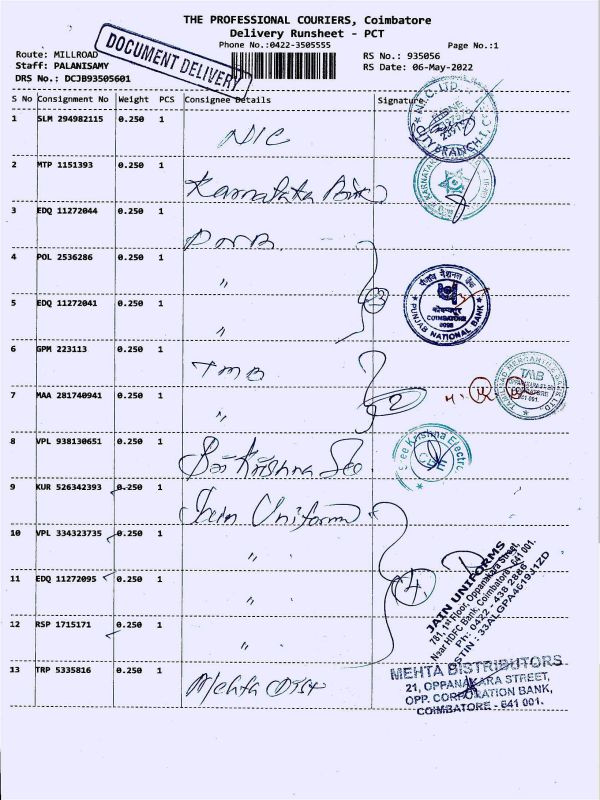 THE PROFESSIONAL COURIERS, Coimbatore
Delivery Runsheet - PCT
Phone No.:0422-3505555
Page No.:1
DOCUMENT DELIVERY
Route: MILLROAD
RS No.: 935056
Staff: PALANISAMY
RS Date: 06-May-2022
DRS No.: DCJB93505601
S No Consignment No Weight PCS Consignee Details Signature
1 SLM 294982115 0.250 1 NIC
2 MTP 1151393 0.250 1 Karnataka Bank
3 EDQ 11272044 0.250 1 PNB
4 POL 2536286 0.250 1 "
5 EDQ 11272041 0.250 1 "
पंजाब नैशनल बैंक
COIMBATORE
PUNJAB NATIONAL BANK
6 GPM 223113 0.250 1 TMB
7 MAA 281740941 0.250 1 " 2
TMB
TAMILNAD MERCANTILE BANK LTD
8 VPL 938130651 0.250 1 Sri Krishna Ele
Sree Krishna Electric
CBE
9 KUR 526342393 0.250 1 Jain Uniform
10 VPL 334323735 0.250 1 "
11 EDQ 11272095 0.250 1 " 4
12 RSP 1715171 0.250 1 "
JAIN UNIFORMS
781, 1st Floor, Oppanakara Street,
Near HDFC Bank, Coimbatore - 641 001.
Ph: 0422 - 438 2886
GSTIN : 33ALGPA4619J1ZD
13 TRP 5335816 0.250 1 Mehta Dist
MEHTA DISTRIBUTORS
21, OPPANAKARA STREET,
OPP. CORPORATION BANK,
COIMBATORE - 641 001.